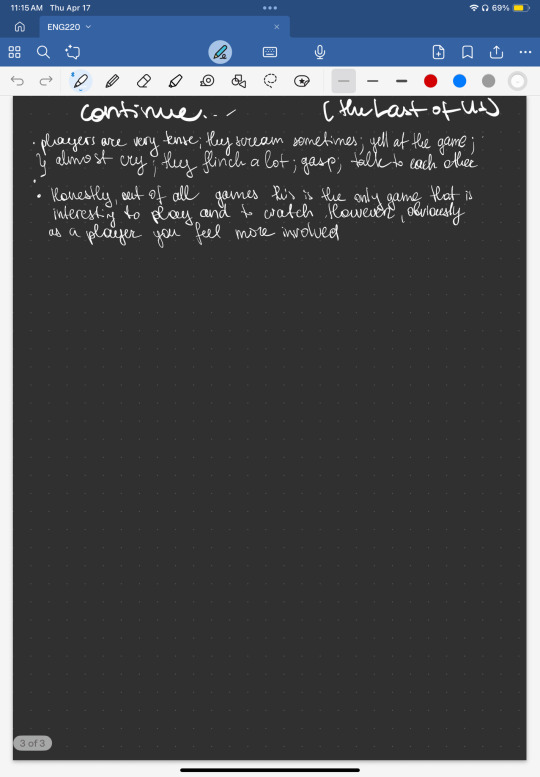 11:15 AM Thu Apr 17
69%
ENG220
continue... (the Last of Us)
• players are very tense; they scream sometimes; yell at the game;
almost cry; they flinch a lot; gasp; talk to each other
•
• Honestly, out of all games this is the only game that is
interesting to play and to watch. However, obviously
as a player you feel more involved
3 of 3